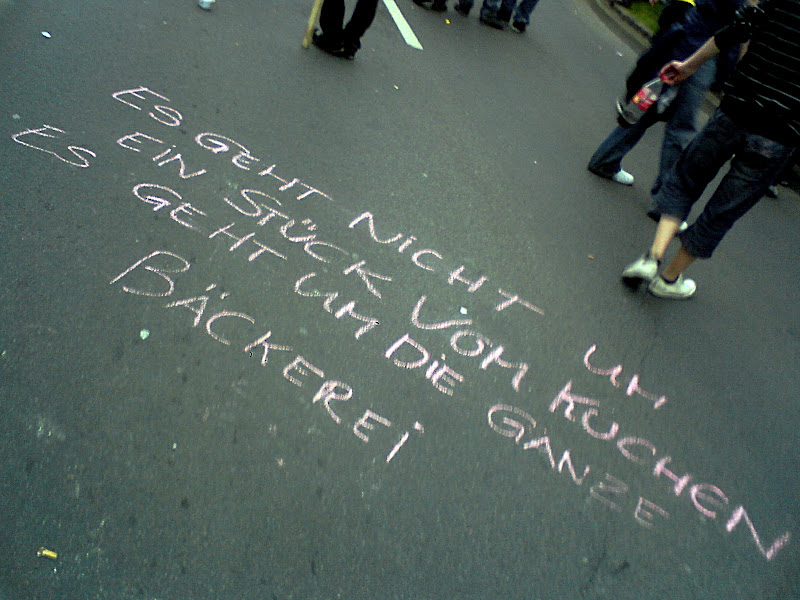 ES GEHT NICHT UM
EIN STÜCK VOM KUCHEN
ES GEHT UM DIE GANZE
BÄCKEREI